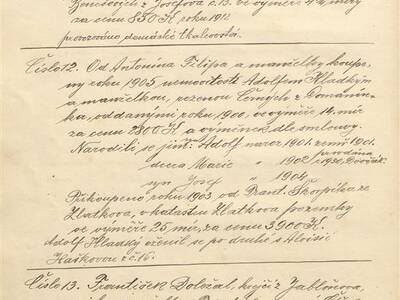 Bendových z Josefova č.13. ve výměře 4½ míry
za cenu 850 K roku 1912
provozováno domácké tkalcovství.
Číslo 12. Od Antonína Filipa a manželky koupe-
ny roku 1905 nemovitosti Adolfem Hladkým
a manželkou, rozenou Černých z Domanín-
ka, oddanými roku 1900, ve výměře 14 mír
za cenu 2800 K a výměnek dle smlouvy.
Narodili se jim: syn Adolf naroz. 1901. zemř. 1901.
dcera Marie " 1902
syn Josef " 1904
Přikoupeno roku 1903 od Frant. Skořepka ze
Zlatkova, v katastru Zlatkova pozemky
ve výměře 25 mír, za cenu 3900 K.
Adolf Hladký oženil se po druhé s Aloisií
Haškovou z č. 16.
Číslo 13. František Doležal, krejčí z Jablonova,